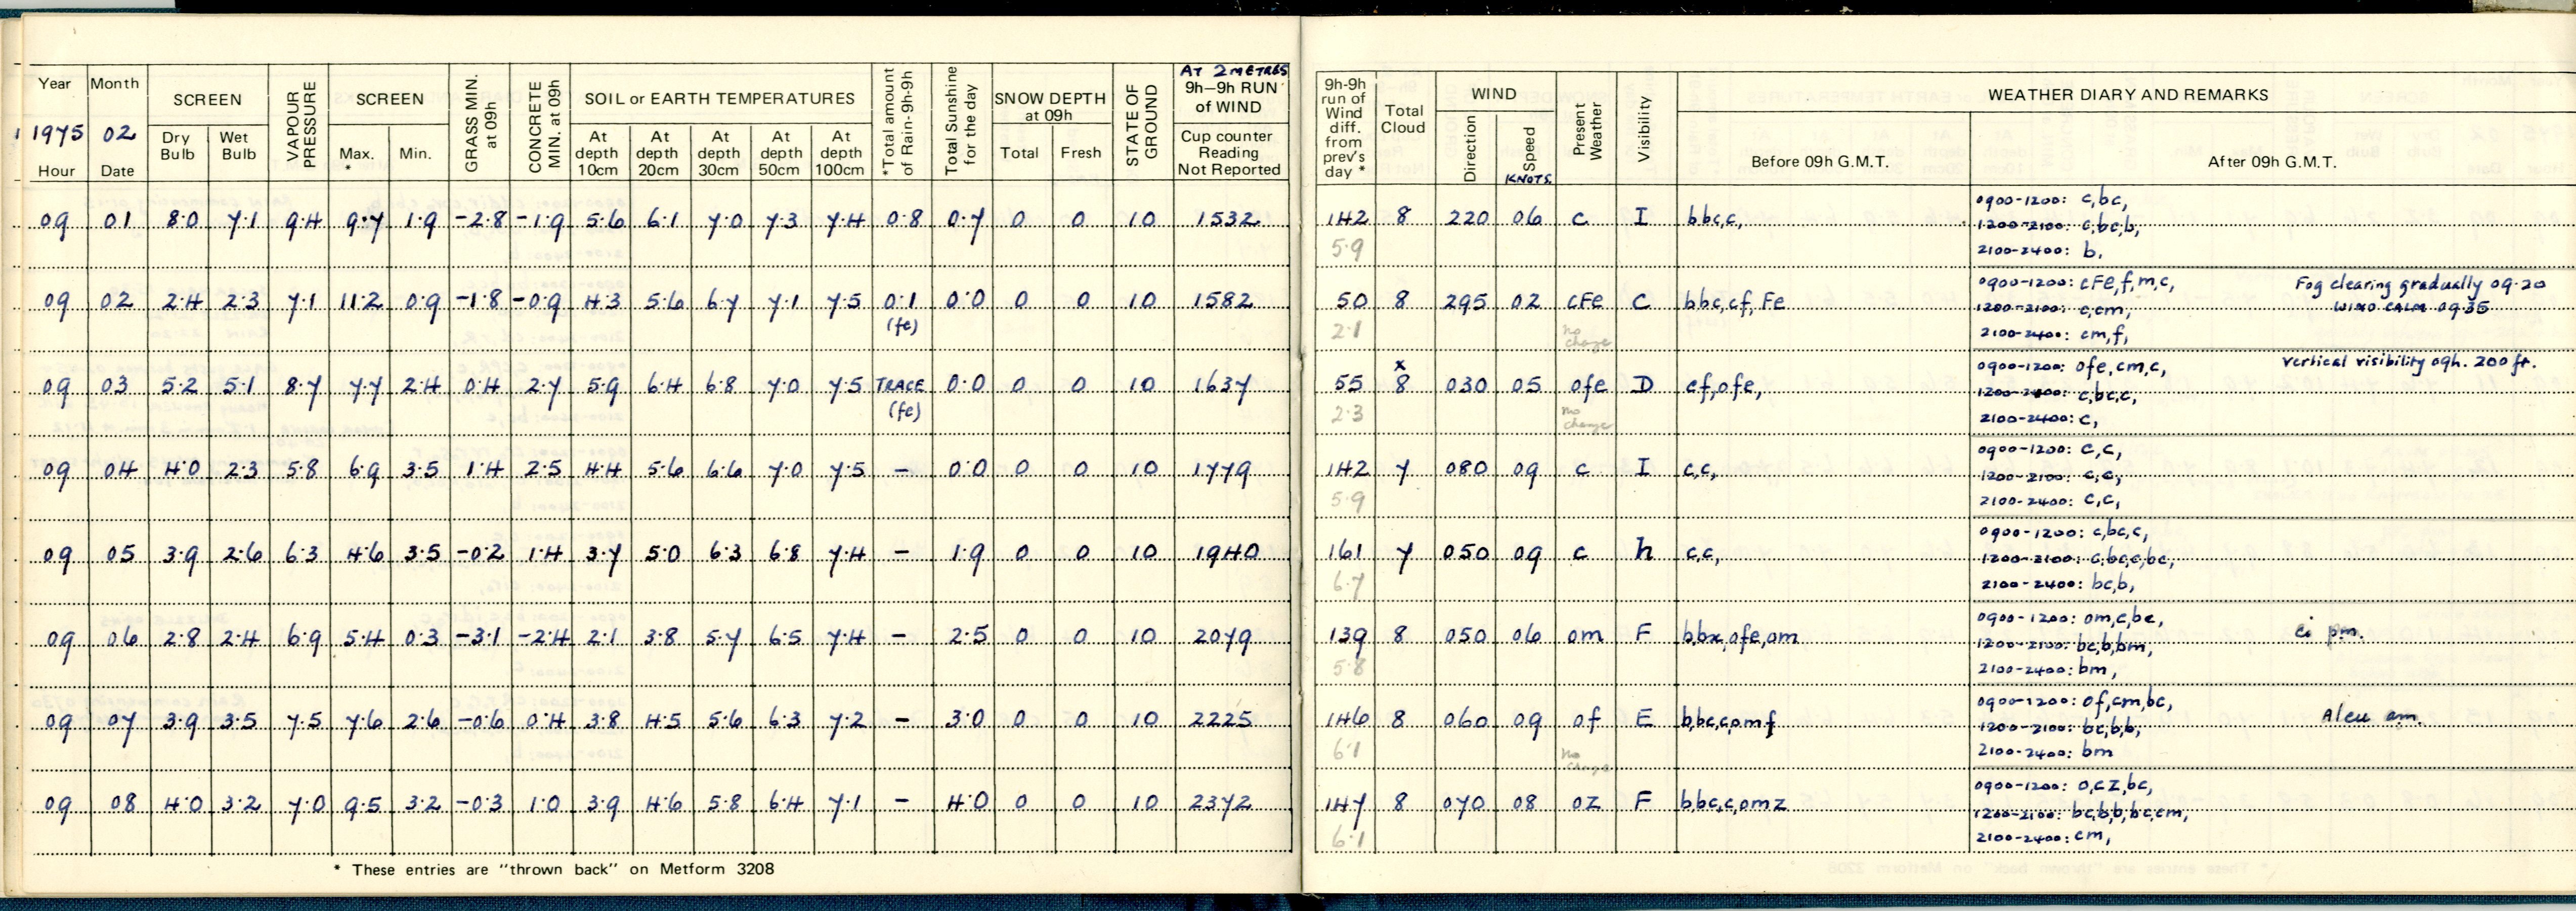 Year Month SCREEN VAPOUR PRESSURE SCREEN GRASS MIN. at 09h CONCRETE MIN. at 09h SOIL or EARTH TEMPERATURES *Total amount of Rain-9h-9h Total Sunshine for the day SNOW DEPTH at 09h STATE OF GROUND AT 2 METRES 9h–9h RUN of WIND
1975 02 Dry Bulb Wet Bulb Max. * Min. At depth 10cm At depth 20cm At depth 30cm At depth 50cm At depth 100cm Total Fresh Cup counter Reading Not Reported
Hour Date
09 01 8.0 7.1 9.4 9.7 1.9 -2.8 -1.9 5.6 6.1 7.0 7.3 7.4 0.8 0.7 0 0 10 1532
09 02 2.4 2.3 7.1 11.2 0.9 -1.8 -0.9 4.3 5.6 6.7 7.1 7.5 0.1 0.0 0 0 10 1582
(fe)
09 03 5.2 5.1 8.7 7.7 2.4 0.4 2.7 5.9 6.4 6.8 7.0 7.5 TRACE 0.0 0 0 10 1637
(fe)
09 04 4.0 2.3 5.8 6.9 3.5 1.4 2.5 4.4 5.6 6.6 7.0 7.5 – 0.0 0 0 10 1779
09 05 3.9 2.6 6.3 4.6 3.5 -0.2 1.4 3.7 5.0 6.3 6.8 7.4 – 1.9 0 0 10 1940
09 06 2.8 2.4 6.9 5.4 0.3 -3.1 -2.4 2.1 3.8 5.7 6.5 7.4 – 2.5 0 0 10 2079
09 07 3.9 3.5 7.5 7.6 2.6 -0.6 0.4 3.8 4.5 5.6 6.3 7.2 – 3.0 0 0 10 2225
09 08 4.0 3.2 7.0 9.5 3.2 -0.3 1.0 3.9 4.6 5.8 6.4 7.1 – 4.0 0 0 10 2372
* These entries are "thrown back" on Metform 3208
9h-9h run of Wind diff. from prev's day * Total Cloud WIND Present Weather Visibility WEATHER DIARY AND REMARKS
Direction Speed KNOTS. Before 09h G.M.T. After 09h G.M.T.
142 8 220 06 c I bbc,c, 0900-1200: c,bc,
5.9 1200-2100: c,bc,b,
2100-2400: b,
50 8 295 02 cFe C bbc,cf,Fe 0900-1200: cFe,f,m,c, Fog clearing gradually 09.20
2.1 no change 1200-2100: c,cm, WIND CALM 09.35
2100-2400: cm,f,
55 x 8 030 05 ofe D cf,ofe, 0900-1200: ofe,cm,c, Vertical visibility 09h. 200 ft.
2.3 no change 1200-2100: c,bc,c,
2100-2400: c,
142 7 080 09 c I c,c, 0900-1200: c,c,
5.9 1200-2100: c,c,
2100-2400: c,c,
161 7 050 09 c h c,c, 0900-1200: c,bc,c,
6.7 1200-2100: c,bc,c,bc,
2100-2400: bc,b,
139 8 050 06 om F bbx,ofe,om 0900-1200: om,c,bc, Ci pm.
5.8 1200-2100: bc,b,bm,
2100-2400: bm,
146 8 060 09 of E bbc,c,omf 0900-1200: of,cm,bc, am.
6.1 no change 1200-2100: bc,b,b,
2100-2400: bm
147 8 070 08 oz F bbc,c,omz 0900-1200: o,cz,bc,
6.1 1200-2100: bc,b,b,bc,cm,
2100-2400: cm,